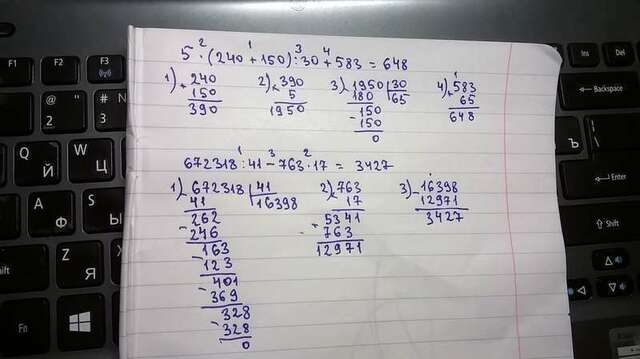 2 1 3 4
5 · (240 + 150) : 30 + 583 = 648
1) 240
+ 150
390
2) 390
× 5
1950
3) 1950 | 30
- 180 | 65
150
- 150
0
4) 583
+ 65
648
1 3 2
672318 : 41 - 763 · 17 = 3427
1) 672318 | 41
- 41 | 16398
262
- 246
163
- 123
401
- 369
328
- 328
0
2) 763
× 17
+ 5341
763
12971
3) 16398
- 12971
3427
F1
F2
F3
Ins
Del
Backspace
Enter
Shift
Fn
@
2
#
3
Q
Й
W
Ц
A
Ф
Z
Я